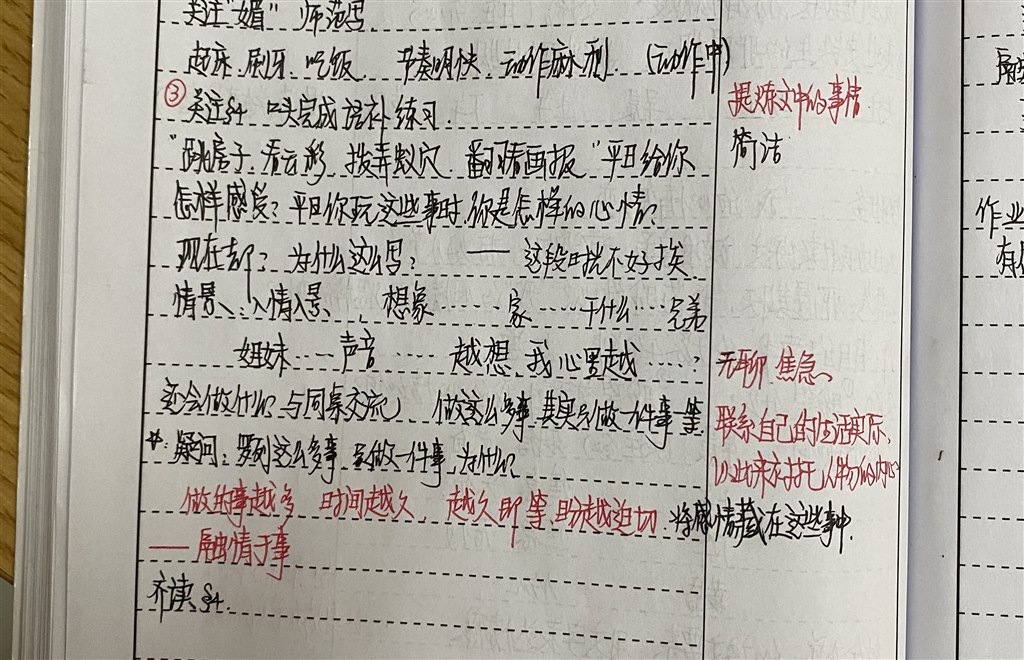 关注"媚" 师范写
起床 刷牙 吃饭 节奏明快 动作麻利 (动作中)
③ 关注§4 口头完成 语补练习.
"跳房子、看云彩、拨弄蚁穴、翻看画报" 平日给你
怎样感受? 平日你玩这些事时, 你是怎样的心情?
现在却? 为什么这么写? —— 这段时光不好挨
情景、入情入景, 想象……家……干什么……兄弟
姐妹……声音…… 越想, 我心里越……?
会做什么 与同桌交流) 做这么多事 其实只做一件事 等
*: 疑问: 罗列这么多事 只做一件事, 为什么
做的事越多 时间越久, 越久即等 盼越迫切 将感情藏在这些事中.
—— 融情于事
齐读§4.
提炼文中的事情
简洁
无聊 焦急
联系自己的生活实际,
以此来衬托人物的内心
作业